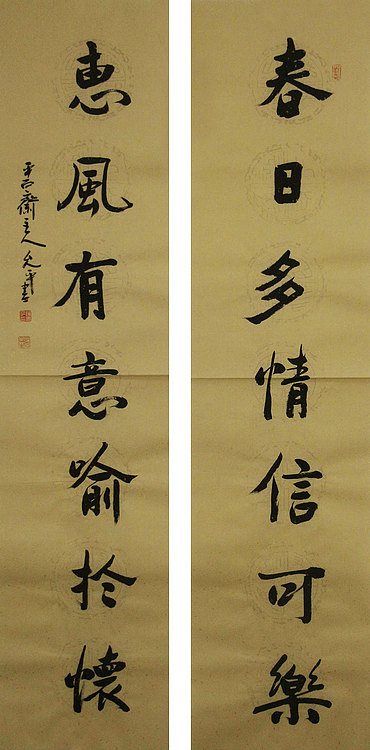 春日多情信可樂
惠風有意喻於懷
齋主人允平書